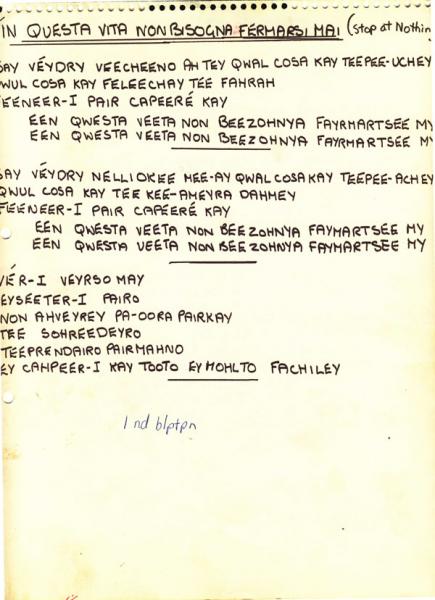 IN QUESTA VITA NON BISOGNA FERMARSI MAI (Stop at Nothin
SAY VÉYDRY VEECHEENO AH TEY QWAL COSA KAY TEEPEE-UCHEY
QWUL COSA KAY FELEECHAY TEE FAHRAH
FEENEER-I PAIR CAPEERÉ KAY
EEN QWESTA VEETA NON BEEZOHNYA FAYRMARTSEE MY
EEN QWESTA VEETA NON BEEZOHNYA FAYRMARTSEE MY
SAY VÉYDRY NELLIOKEE MEE-AY QWAL COSA KAY TEEPEE-ACHEY
QWUL COSA KAY TEE KEE-AMEYRA DAHMEY
FEENEER-I PAIR CAPEERÉ KAY
EEN QWESTA VEETA NON BEEZOHNYA FAYMARTSÉE MY
EEN QWESTA VEETA NON BEEZOHNYA FAYMARTSÉE MY
VÉR-I VEYRSO MAY
EYSEETER-I PAIRO
NON AHVEYREY PA-OORA PAIRKAY
TEE SOHREEDEYRO
TEEPRENDAIRO PAIRMAHNO
EY CAHPEER-I KAY TOOTO EY MOHLTO FACHILEY